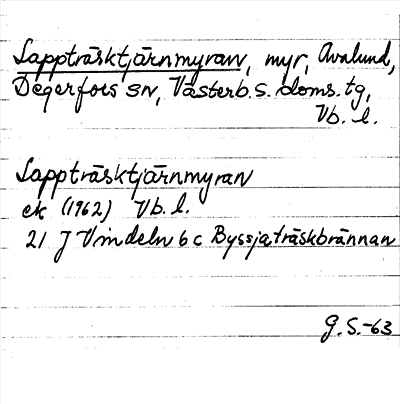 Lappträsktjärnmyran, myr, Avalund,
Degerfors sn, Västerb. s. doms. tg,
Vb. l.
Lappträsktjärnmyran
ek (1962) Vb. l.
21 J Vindeln 6 c Byssjaträskbrännan
G. S.-63